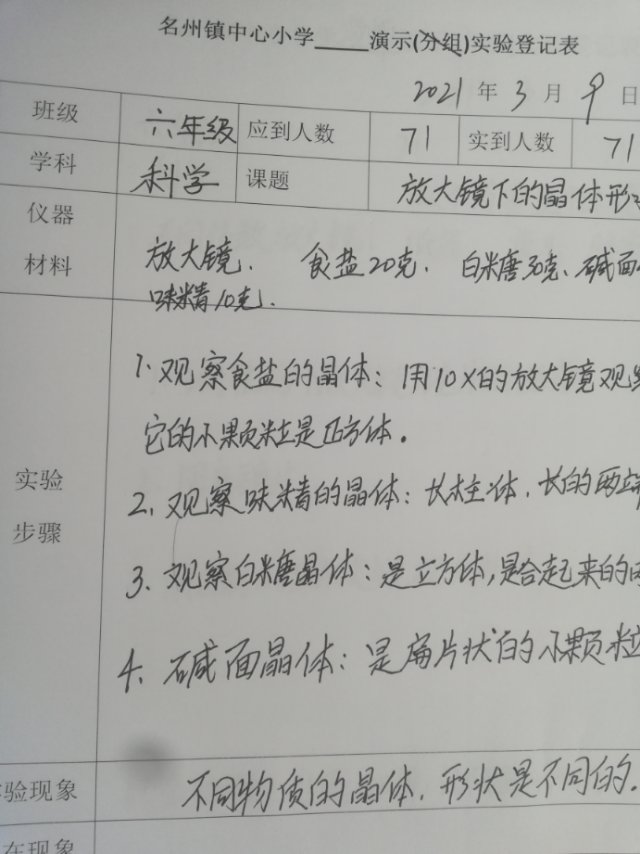 名州镇中心小学____演示(分组)实验登记表
2021 年 3 月 9 日
班级 六年级 应到人数 71 实到人数 71
学科 科学 课题 放大镜下的晶体形
仪器
材料
放大镜. 食盐20克. 白米糖30克、碱面
味精10克.
实验
步骤
1. 观察食盐的晶体：用10X的放大镜观
它的小颗粒是正方体。
2. 观察味精的晶体：长柱体. 长的两
3. 观察白糖晶体：是立方体,是合起来的
4. 碱面晶体：是扁片状的小颗粒
验现象 不同物质的晶体. 形状是不同的.
在现象